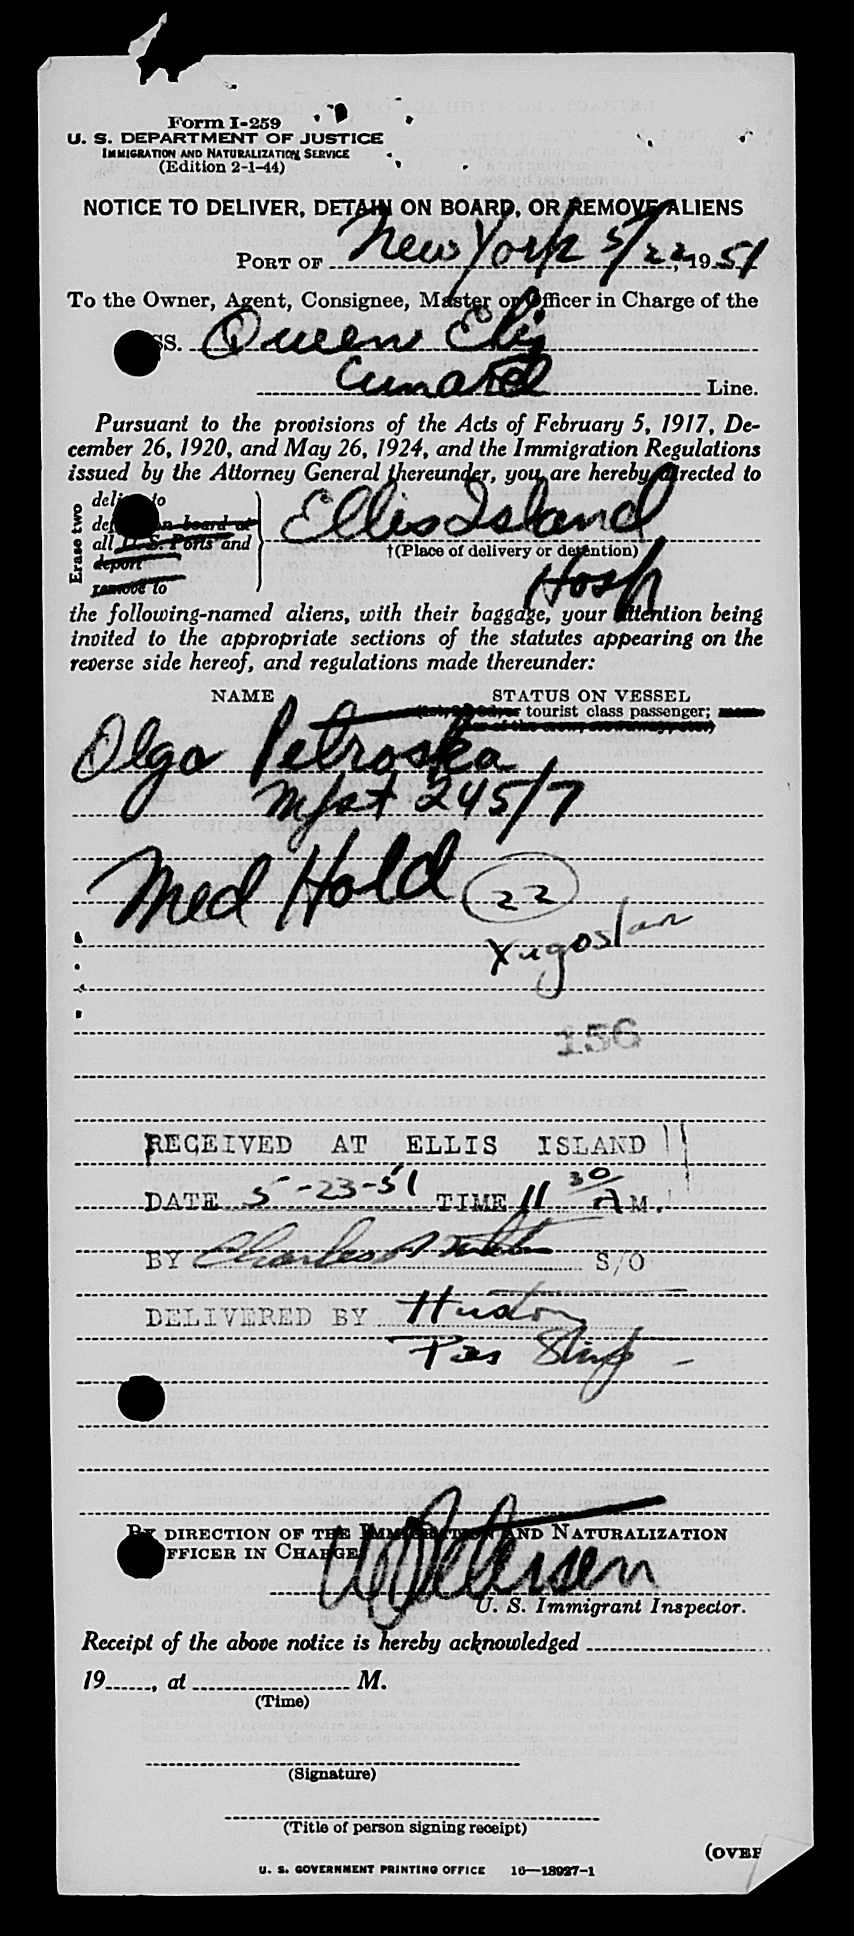 Form I-259
U. S. DEPARTMENT OF JUSTICE
IMMIGRATION AND NATURALIZATION SERVICE
(Edition 2-1-44)
NOTICE TO DELIVER, DETAIN ON BOARD, OR REMOVE ALIENS
PORT OF New York 5/22, 1951
To the Owner, Agent, Consignee, Master or Officer in Charge of the
SS. Queen Eliz
Cunard Line.
Pursuant to the provisions of the Acts of February 5, 1917, De-
cember 26, 1920, and May 26, 1924, and the Immigration Regulations
issued by the Attorney General thereunder, you are hereby directed to
Erase two
deliver to
on board at
all U. S. Ports and
deport
remove to
Ellis Island
†(Place of delivery or detention)
Hosp
the following-named aliens, with their baggage, your attention being
invited to the appropriate sections of the statutes appearing on the
reverse side hereof, and regulations made thereunder:
NAME STATUS ON VESSEL
tourist class passenger;
Olga Petroska
Mfst 245/7
Med Hold 22
Yugoslav
156
RECEIVED AT ELLIS ISLAND
DATE 5-23-51 TIME 11 30/A M.
BY Charles S/O
DELIVERED BY Huston
By DIRECTION OF THE IMMIGRATION AND NATURALIZATION
OFFICER IN CHARGE
Petersen
U. S. Immigrant Inspector.
Receipt of the above notice is hereby acknowledged
19, at M.
(Time)
(Signature)
(Title of person signing receipt)
(OVER
U. S. GOVERNMENT PRINTING OFFICE 16—18927-1